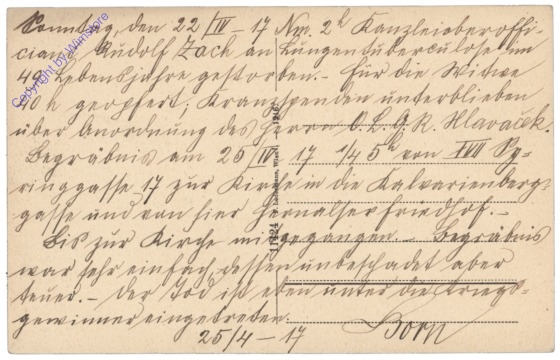 Sonntag, den 22/IV – 17 Nm. 2h Kanzleioberoffi-
cianz Rudolf Zach an Lungentuberculose im
49 Lebensjahre gestorben. – Für die Witwe
40 h geopfert; Kranzspenden unterblieben
über Anordnung des Herrn O.L.G.R. Hlavacek.
Begräbnis am 25/IV 17 1/4 5h von XVII Sy-
ringgasse 17 zur Kirche in die Kalvarienberg-
gasse und von hier Hernalser Friedhof. –
Bis zur Kirche mitgegangen. – Begräbnis
war sehr einfach dessen unbeschadet aber
teuer. – Der Tod ist eben unter die Kriegs-
gewinner eingetreten.
25/4 – 17 Born
Copyright by Winstore
11424
Wien